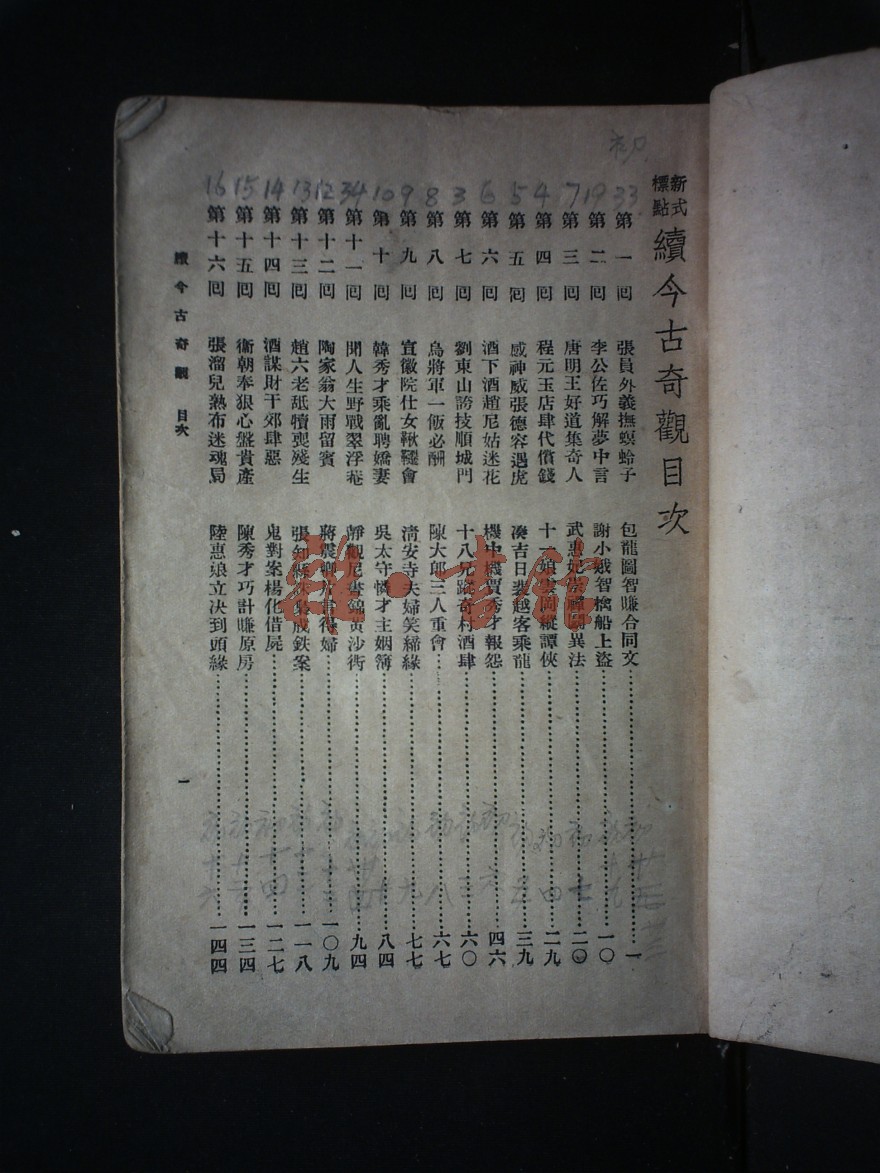 新式標點 續今古奇觀目次
初
33 第一回 張員外義撫螟蛉子 包龍圖智賺合同文 一
19 第二回 李公佐巧解夢中言 謝小娥智擒船上盜 一〇
7 第三回 唐明王好道集奇人 武惠妃崇禪鬬異法 二〇
4 第四回 程元玉店肆代償錢 十一娘雲岡縱譚俠 二九
5 第五回 感神威張德容遇虎 湊吉日裴越客乘龍 三九
6 第六回 酒下酒趙尼姑迷花 機中機賈秀才報怨 四六
3 第七回 劉東山誇技順城門 十八兄蹤奇村酒肆 六〇
8 第八回 烏將軍一飯必酬 陳大郎三人重會 六七
9 第九回 宣徽院仕女鞦韆會 淸安寺夫婦笑締緣 七七
10 第十回 韓秀才乘亂聘嬌妻 吳太守憐才主姻簿 八四
34 第十一回 聞人生野戰翠浮菴 靜觀尼晝錦黃沙衖 九四
12 第十二回 陶家翁大雨留賓 蔣震卿片言得婦 一〇九
13 第十三回 趙六老舐犢喪殘生 張知縣誅梟成鉄案 一一八
14 第十四回 酒謀財于郊肆惡 鬼對案楊化借屍 一二七
15 第十五回 衞朝奉狠心盤貴產 陳秀才巧計賺原房 一三四
16 第十六回 張溜兒熟布迷魂局 陸惠娘立決到頭緣 一四四
續今古奇觀 目次
一